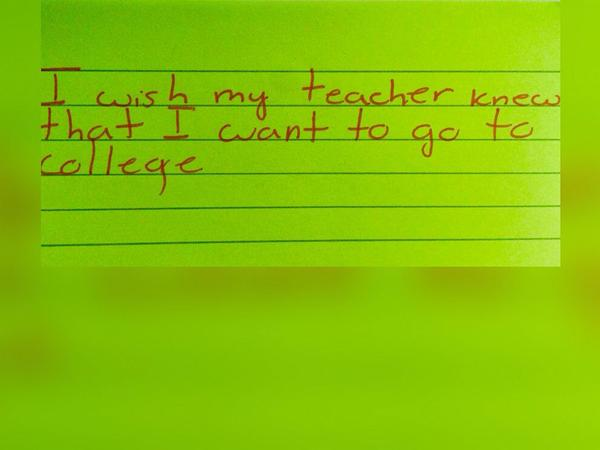 I wish my teacher knew
that I want to go to
college